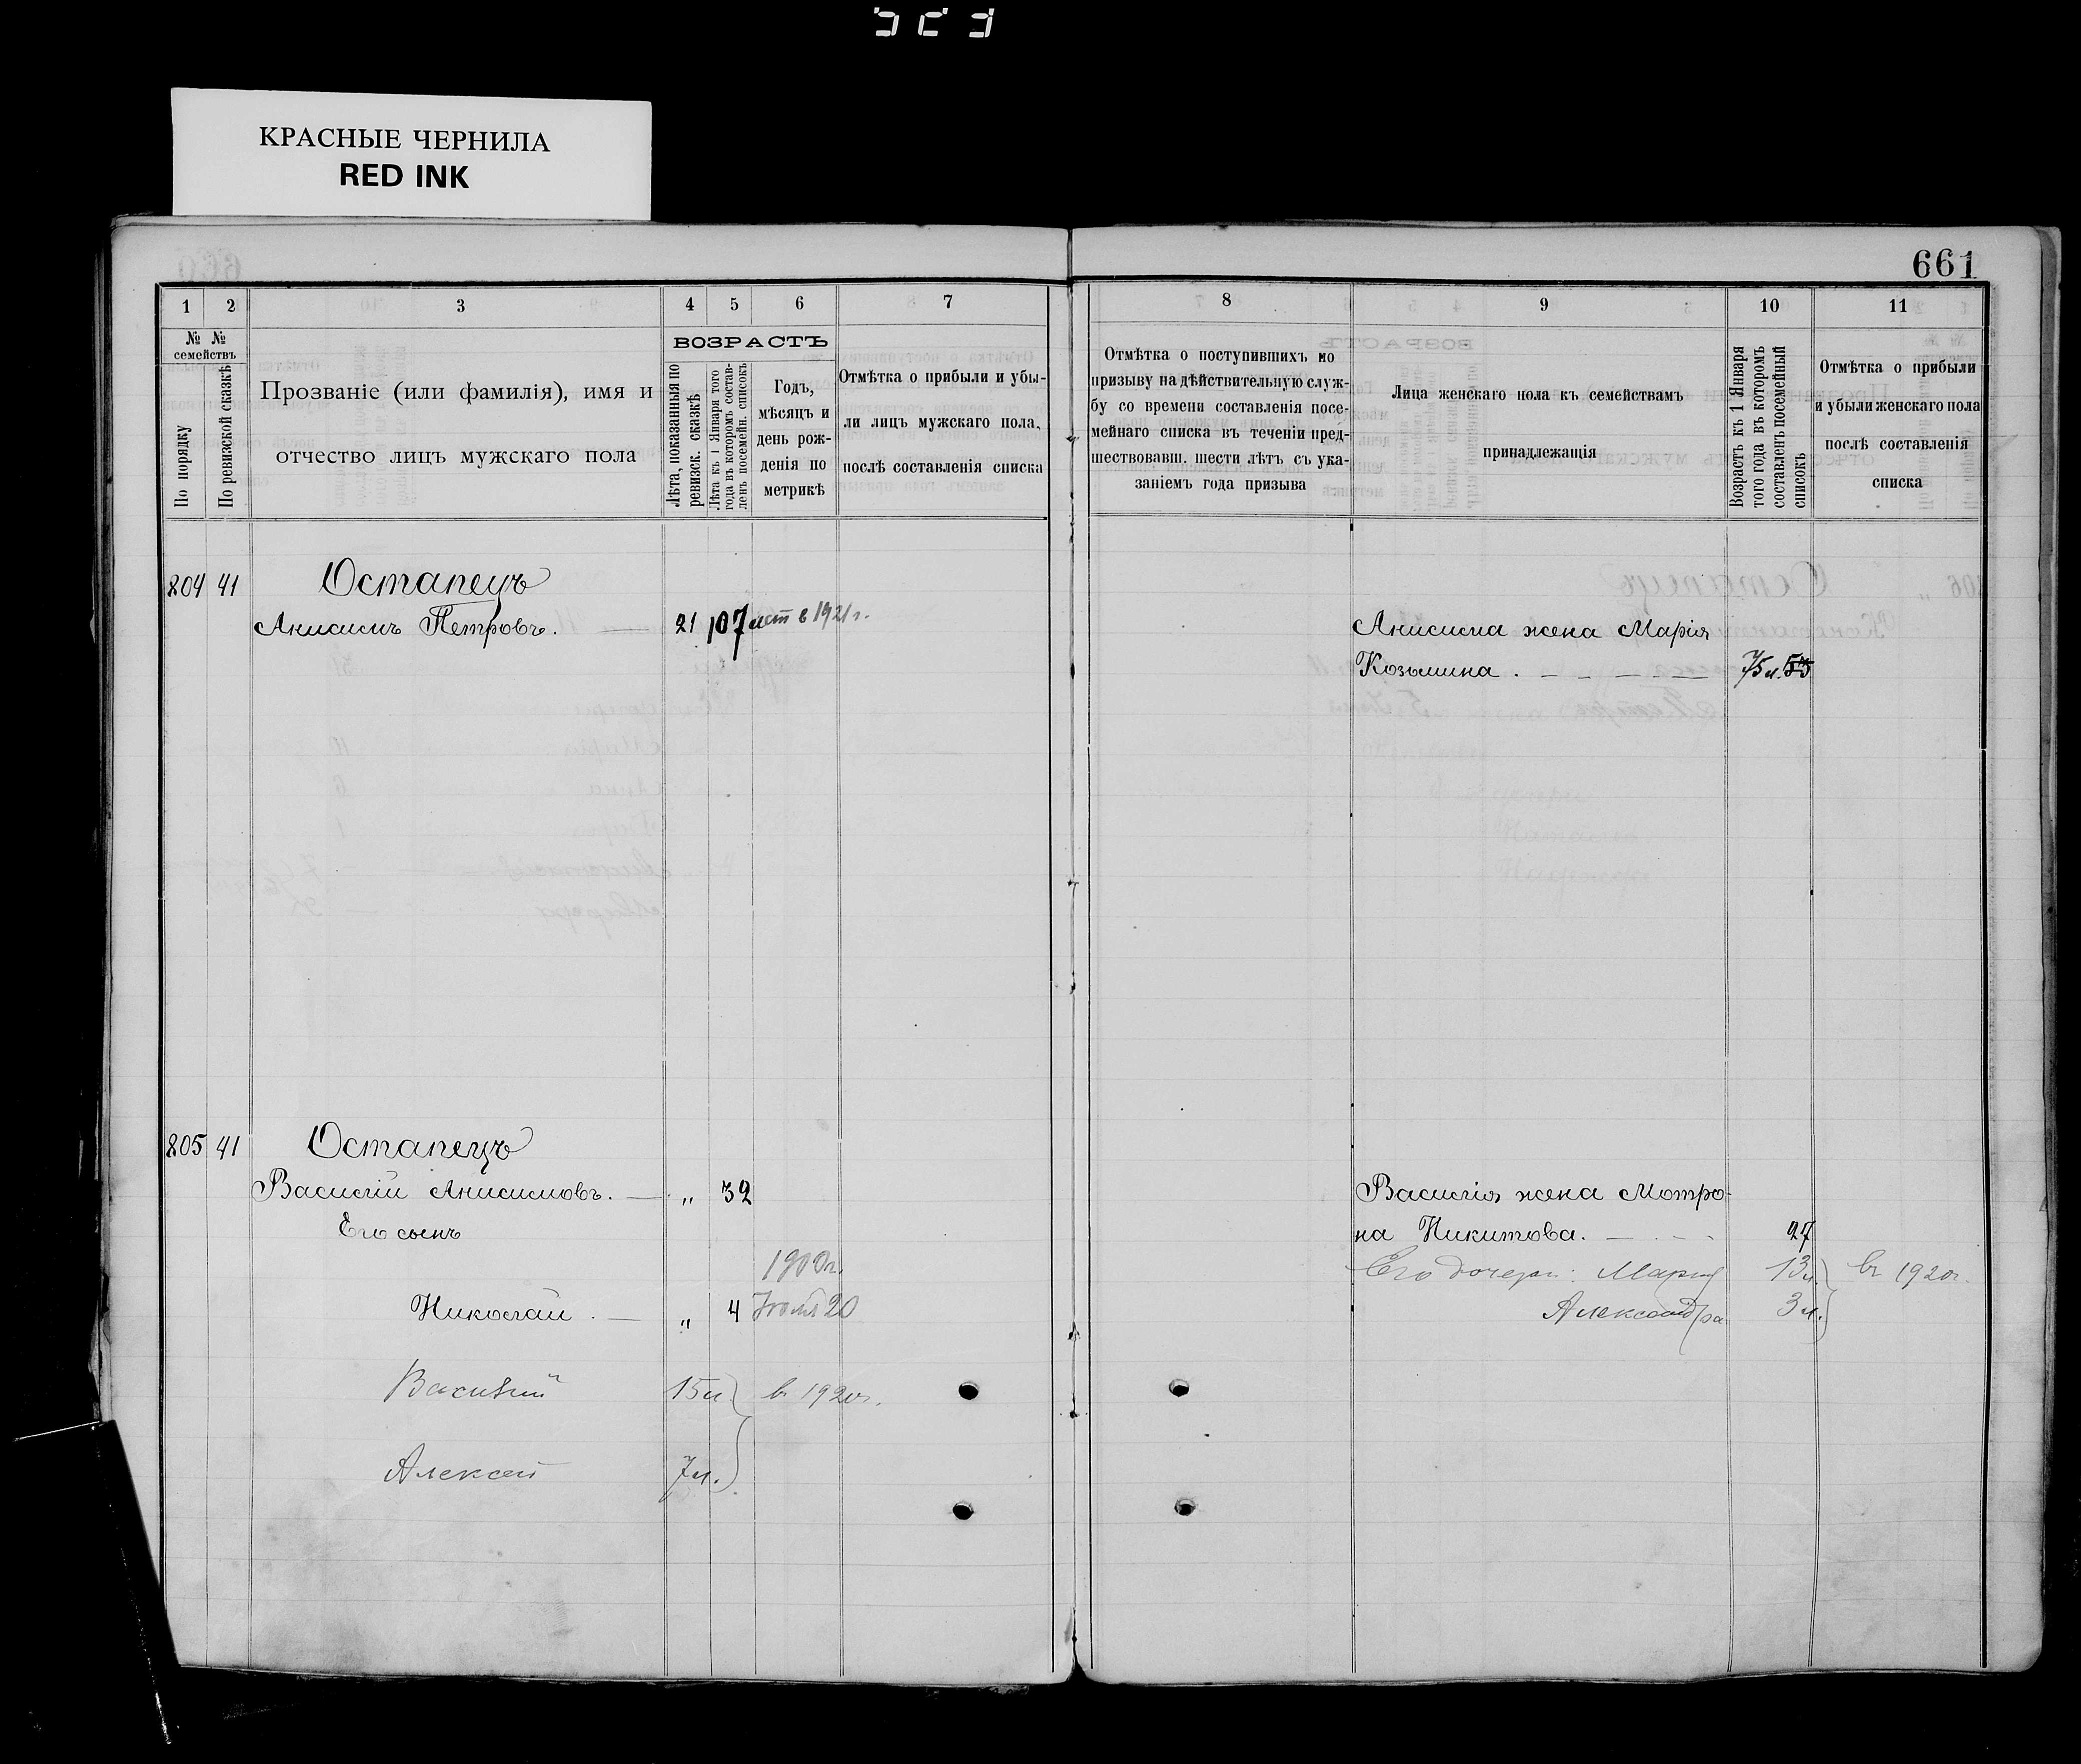 КРАСНЫЕ ЧЕРНИЛА
RED INK
661
1 2 3 4 5 6 7
№ № семействъ
По порядку
По ревизской сказкѣ
Прозваніе (или фамилія), имя и
отчество лицъ мужскаго пола
ВОЗРАСТЪ
Лѣта, показанныя по
ревизск. сказкѣ
Лѣта къ 1 Января того
года въ которомъ состав-
ленъ посемейн. списокъ
Годъ,
мѣсяцъ и
день рож-
денія по
метрикѣ
Отмѣтка о прибыли и убы-
ли лицъ мужскаго пола,
послѣ составленія списка
8 9 10 11
Отмѣтка о поступившихъ по
призыву на дѣйствительную служ-
бу со времени составленія посе-
мейнаго списка въ теченіи пред-
шествовавш. шести лѣтъ съ ука-
заніемъ года призыва
Лица женскаго пола къ семействамъ
принадлежащія
Возрастъ къ 1 Января
того года въ которомъ
составленъ посемейный
списокъ
Отмѣтка о прибыли
и убыли женскаго пола
послѣ составленія
списка
204 41 Остапецъ
Анисимъ Петровъ. 21 107 лет в 1921 г.
Анисима жена Марія
Козьмина . 75 л. 53
205 41 Остапецъ
Василій Анисимовъ. „ 32
Его сынъ
1900 г.
Николай . „ 4 Июля 20
Василий 15 л. в 1920 г.
Алексей 7 л.
Василія жена Мотро-
на Никитова. 27
Его дочери: Мария 13 л. в 1920 г.
Александра 3 л.